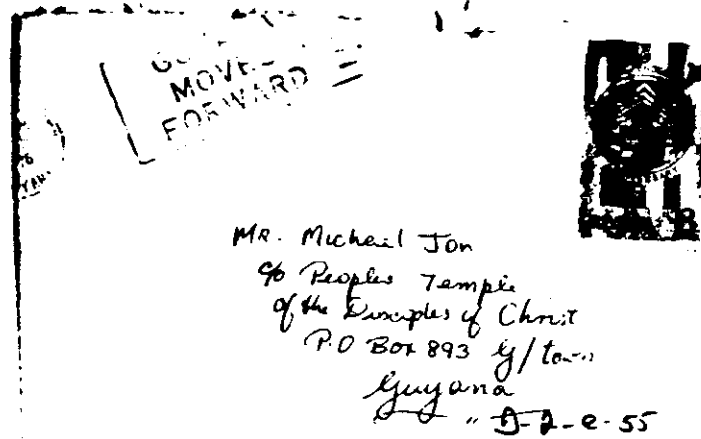 MOVE
FORWARD
Mr. Micheal Jon
c/o Peoples Temple
of the Disciples of Christ
P.O Box 893 G/town
Guyana
" D-2-e-55